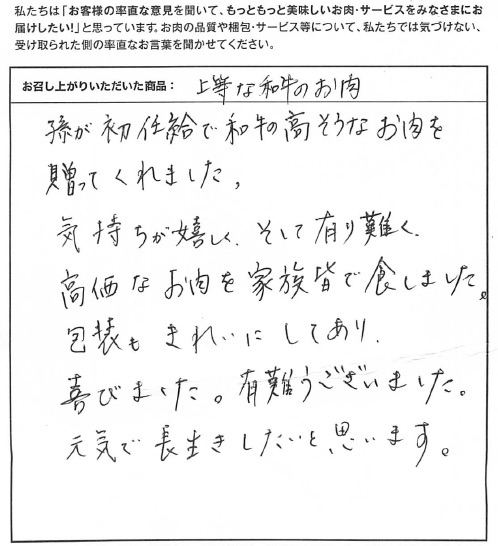 私たちは「お客様の率直な意見を聞いて、もっともっと美味しいお肉・サービスをみなさまにお
届けしたい!」と思っています。お肉の品質や梱包・サービス等について、私たちでは気づけない、
受け取られた側の率直なお言葉を聞かせてください。
お召し上がりいただいた商品： 上等な和牛のお肉
孫が初任給で和牛の高そうなお肉を
贈ってくれました。
気持ちが嬉しく、そして有り難く、
高価なお肉を家族皆で食しました。
包装もきれいにしてあり、
喜びました。有難うございました。
元気で長生きしたいと思います。